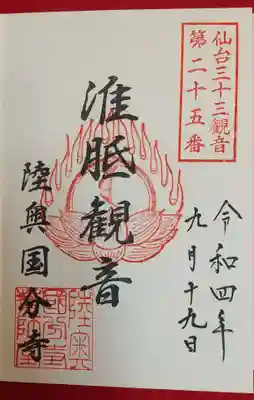 仙台三十三観音
第二十五番
令和四年
九月十九日
准胝観音
陸奥国分寺